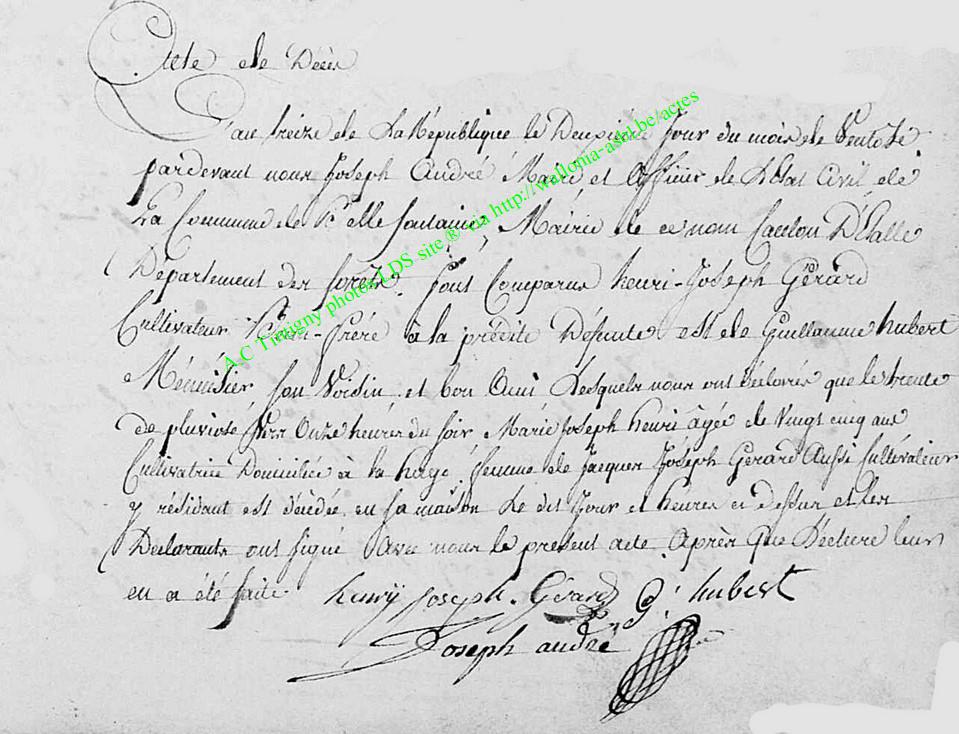 Acte de Décès
L'an treize de La République le Deuxième Jour du mois de Ventose
pardevant nous Joseph André Maire et Officier de L'Etat Civil de
La Commune de Bellefontaine, Mairie de ce nom Canton D'Etalle
Département des forêts. sont Comparus henri-Joseph Gérard
Cultivateur Beau-Frère à la précitée Défunte est de Guillaume hubert
Ménuisier, son Voisin et bon Ami Lesquels nous ont Déclarés que le trente
de pluviose vers Onze heures du soir Marie Joseph henri âgée de Vingt cinq ans
Cultivatrice Domiciliée à la hage, femme de Jacques Joséph Gerard Aussi Cultivateur
y résidant est décédée en sa maison Le dit Jour et heures ci dessus et les
Déclarants ont signé Avec nous le present acte Après que Lecture leur
en a été faite henry joseph Gérard G: hubert
Joseph andré
A.C Tintigny photos LDS site ® via http://wallonia-asbl.be/actes